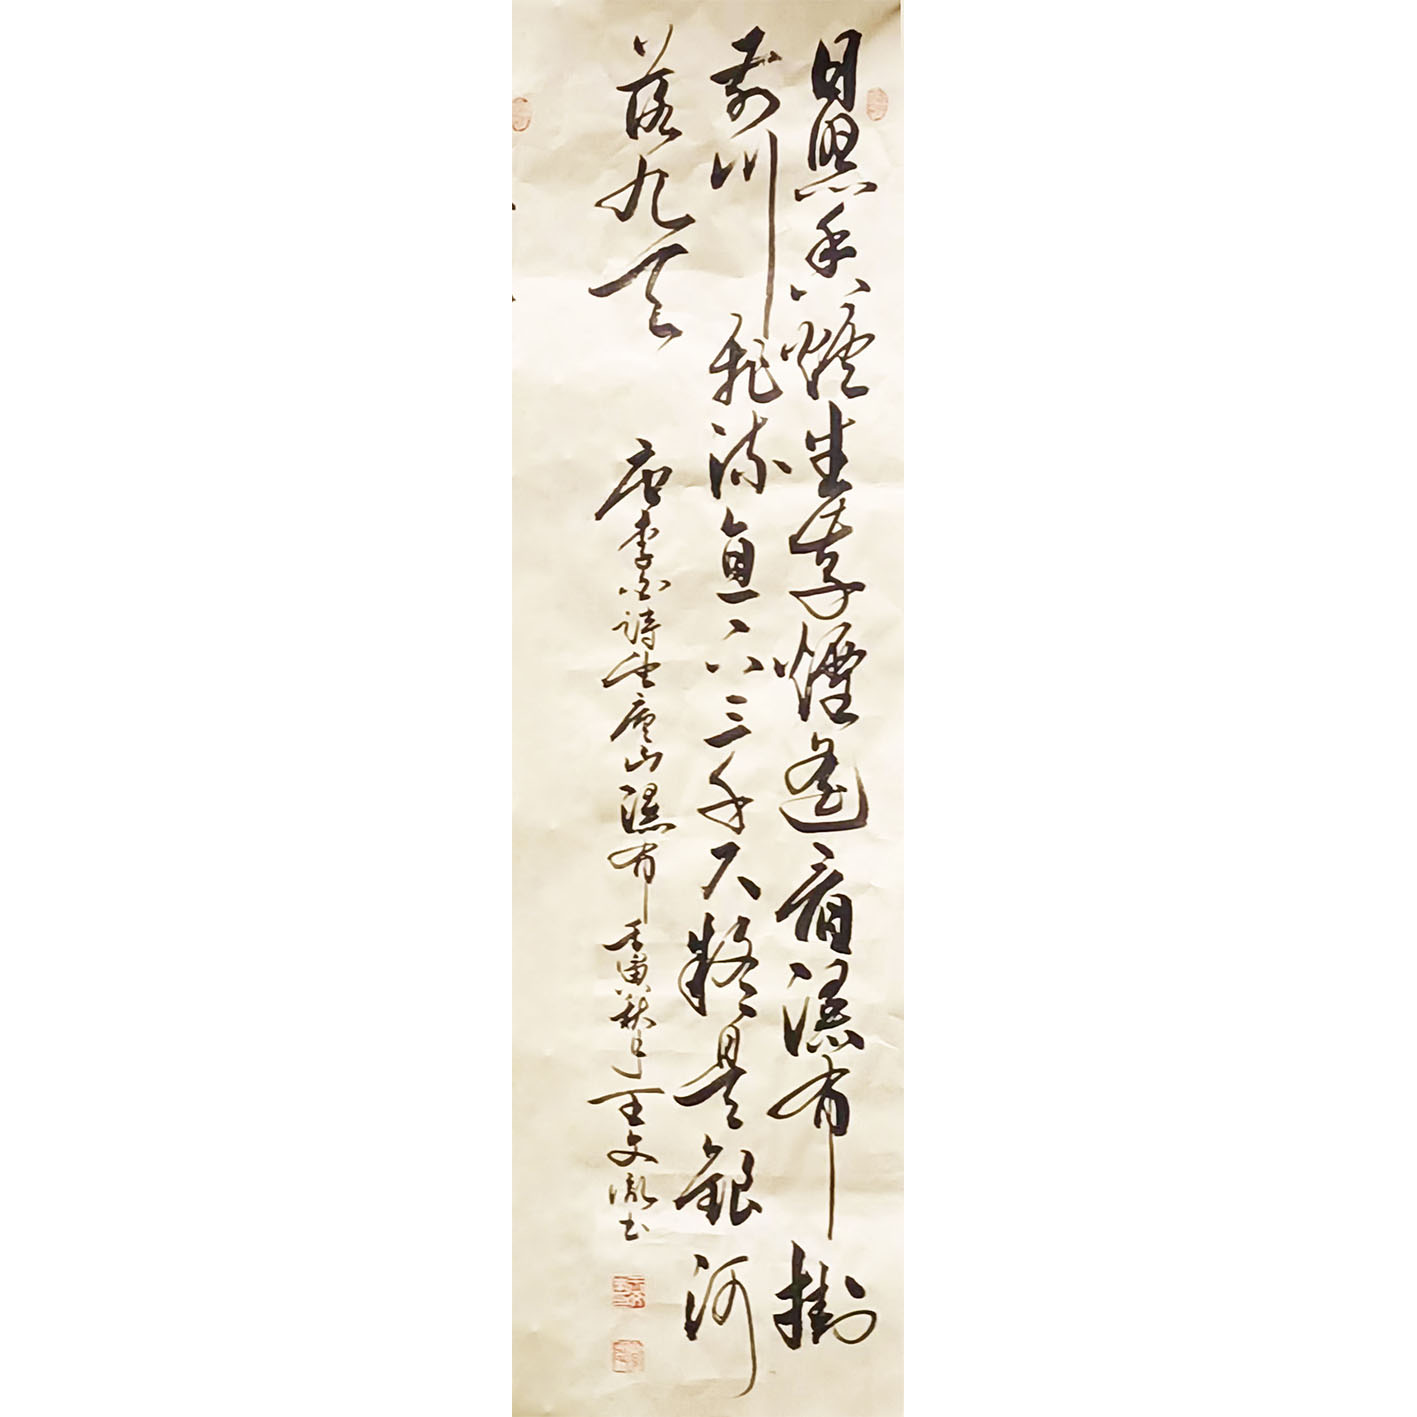 日照香爐生紫煙遙看瀑布掛
前川飛流直下三千尺疑是銀河
落九天
唐李白詩望廬山瀑布 壬寅秋月 王文胤書